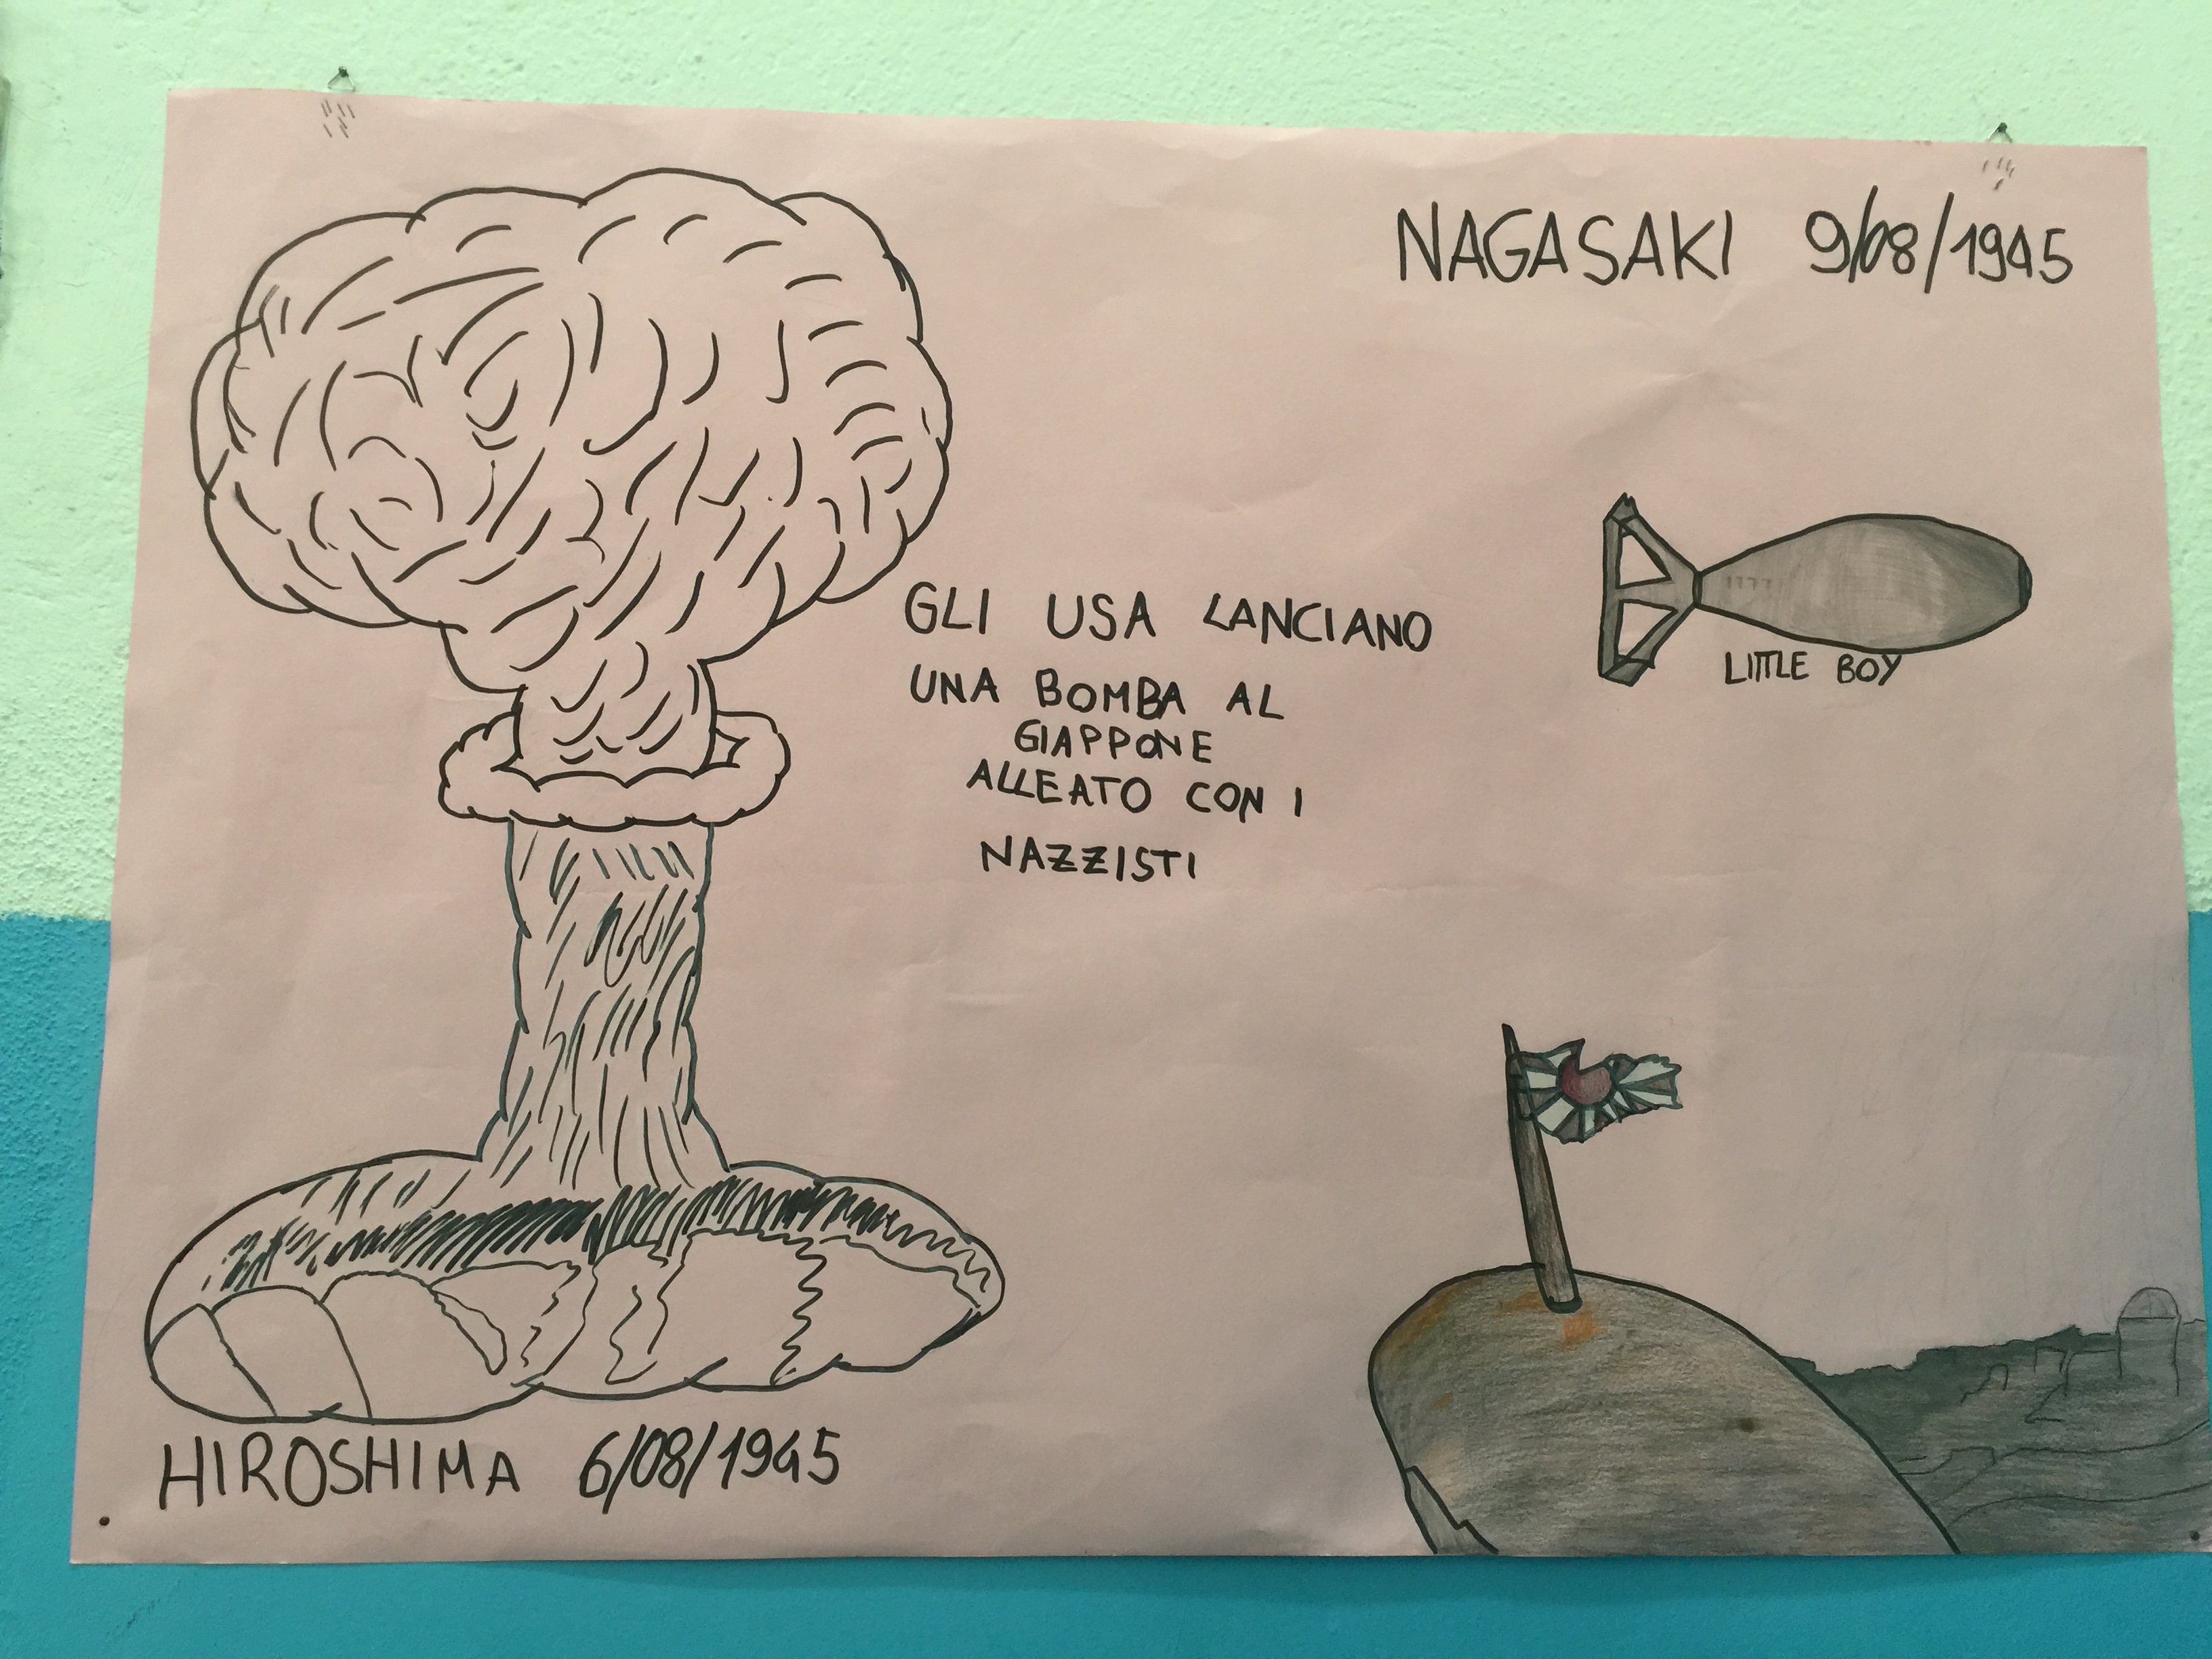 NAGASAKI 9/08/1945
GLI USA LANCIANO
UNA BOMBA AL
GIAPPONE
ALLEATO CON I
NAZZISTI
LITTLE BOY
HIROSHIMA 6/08/1945